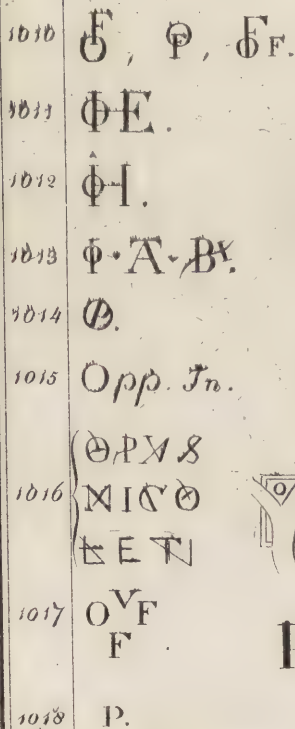 1010 OF, OF, OF F.
1011 ΦE.
1012 ΦH.
1013 Φ·A·B
1014
1015 Opp. In.
1016 OPVS
NICO
LET
1017 OVF
F
1018 P.